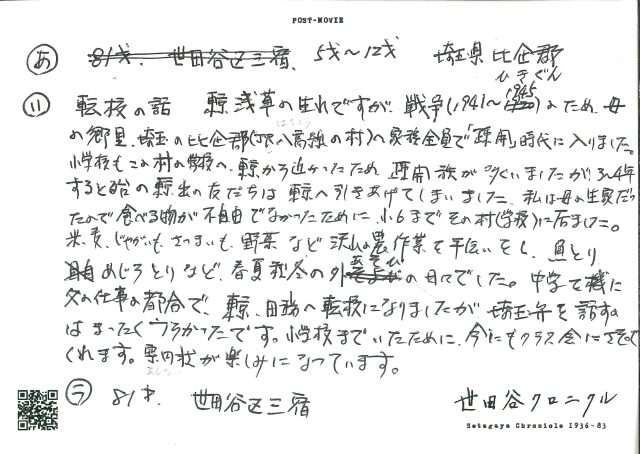 POST-MOVIE
あ 81才. 世田谷区三宿、 5才〜12才 埼玉県 比企郡
ひきぐん
1945
い 転校の話 東京浅草の生れですが、戦争(1941〜)のため、母
はちこう
の郷里、埼玉の比企郡(JR八高線の村)へ家族全員で「疎開」時代に入りました。
小学校もこの村の学校へ、東京から近かったため 疎開族が多くいましたが 3、4年
すると の東京出の友だちは 東京へ引きあげてしまいました、私は母の生家だっ
たので食べる物が不自由でなかったために、小6まで その村(学校)に居ました。
米、麦、じゃがいも、さつまいも、野菜 など 沢山の農作業を手伝いをし、魚とり
めじろとりなど、春夏秋冬の外あそびの日々でした。中学で機に
父の仕事の都合で、東京、目黒へ転校になりましたが 埼玉弁を話すのは
まったく つらかったです。小学校までいたために、今にもクラス会にさそって
くれます。案内状が楽しみになっています。
う 81才. 世田谷区三宿
世田谷クロニクル
Setagaya Chronicle 1936-83